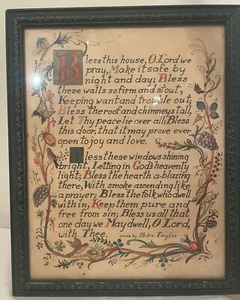 Bless this house, O Lord we
pray, Make it safe by
night and day; Bless
these walls so firm and stout,
Keeping want and trouble out;
Bless the roof and chimneys tall,
Let Thy peace lie over all; Bless
this door, that it may prove ever
open to joy and love.
Bless these windows shining
bright, Letting in God's heavenly
light; Bless the hearth a-blazing
there, With smoke ascending like
a prayer; Bless the folk who dwell
within, Keep them pure and
free from sin; Bless us all that
one day we May dwell, O Lord,
with Thee. Helen Taylor